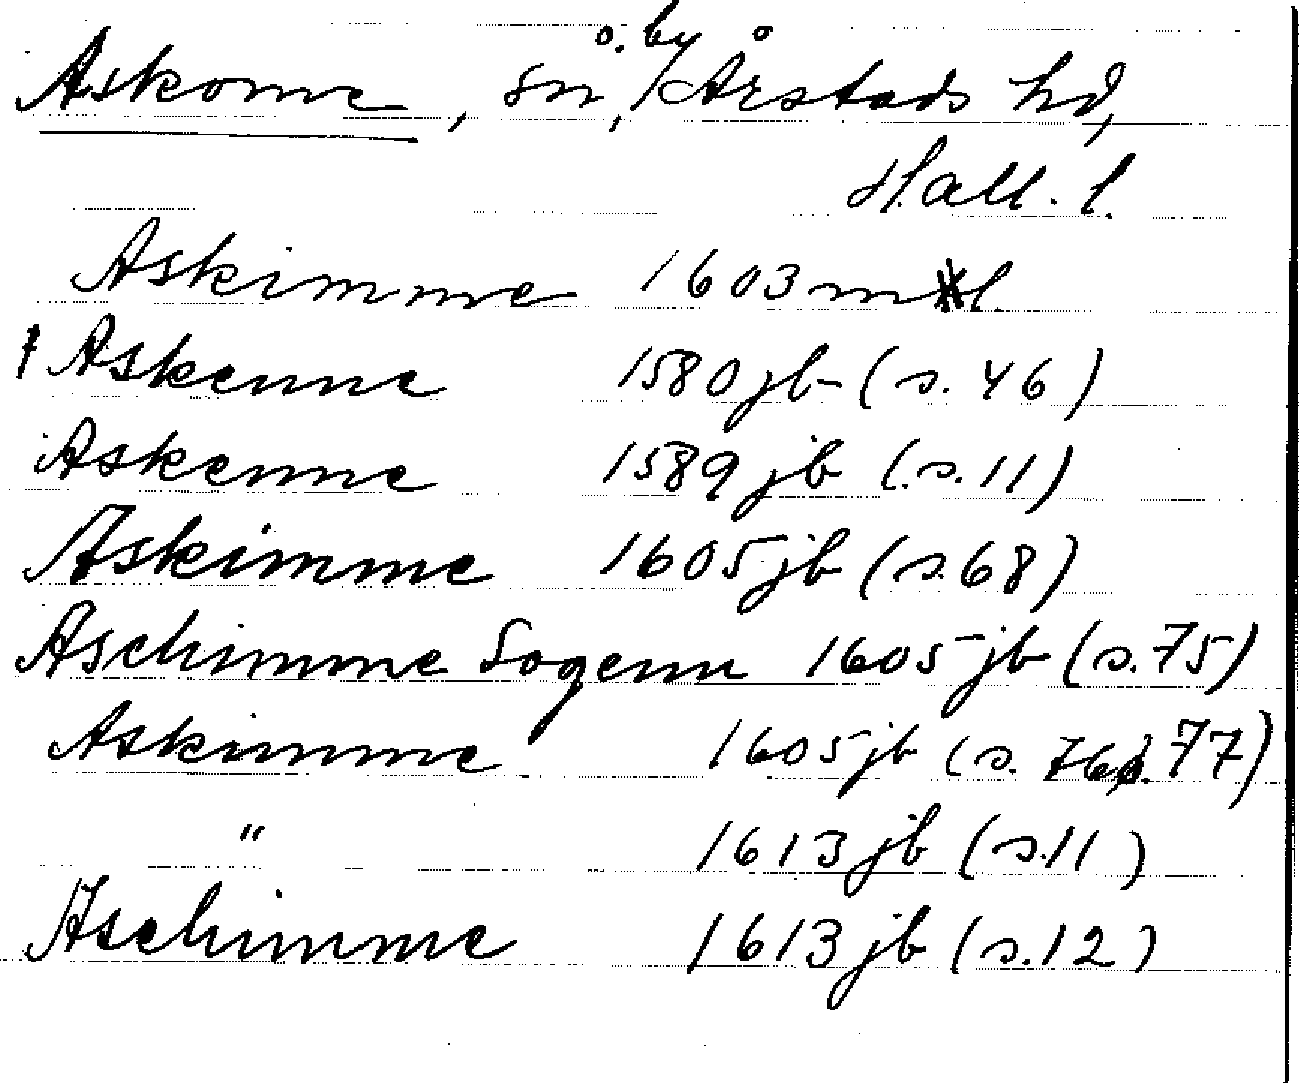 Askome, sn, o. by Årstads hd,
Hall. l.
Askimme 1603 ml
Askenne 1580 jb (s. 46)
Askenne 1589 jb (s. 11)
Askimme 1605 jb (s. 68)
Aschimme Sogenn 1605 jb (s. 75)
Askimme 1605 jb (s. 76, 77)
" 1613 jb (s. 11)
Aschimme 1613 jb (s. 12)